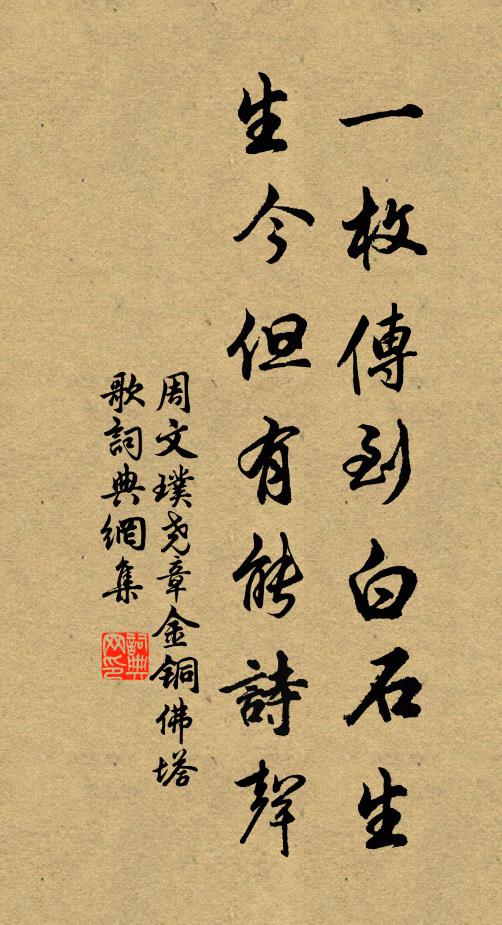 一枚傳到白石生
生今但有能詩聲
周文璞堯章金銅佛塔
歌詞典網集
詞典網印